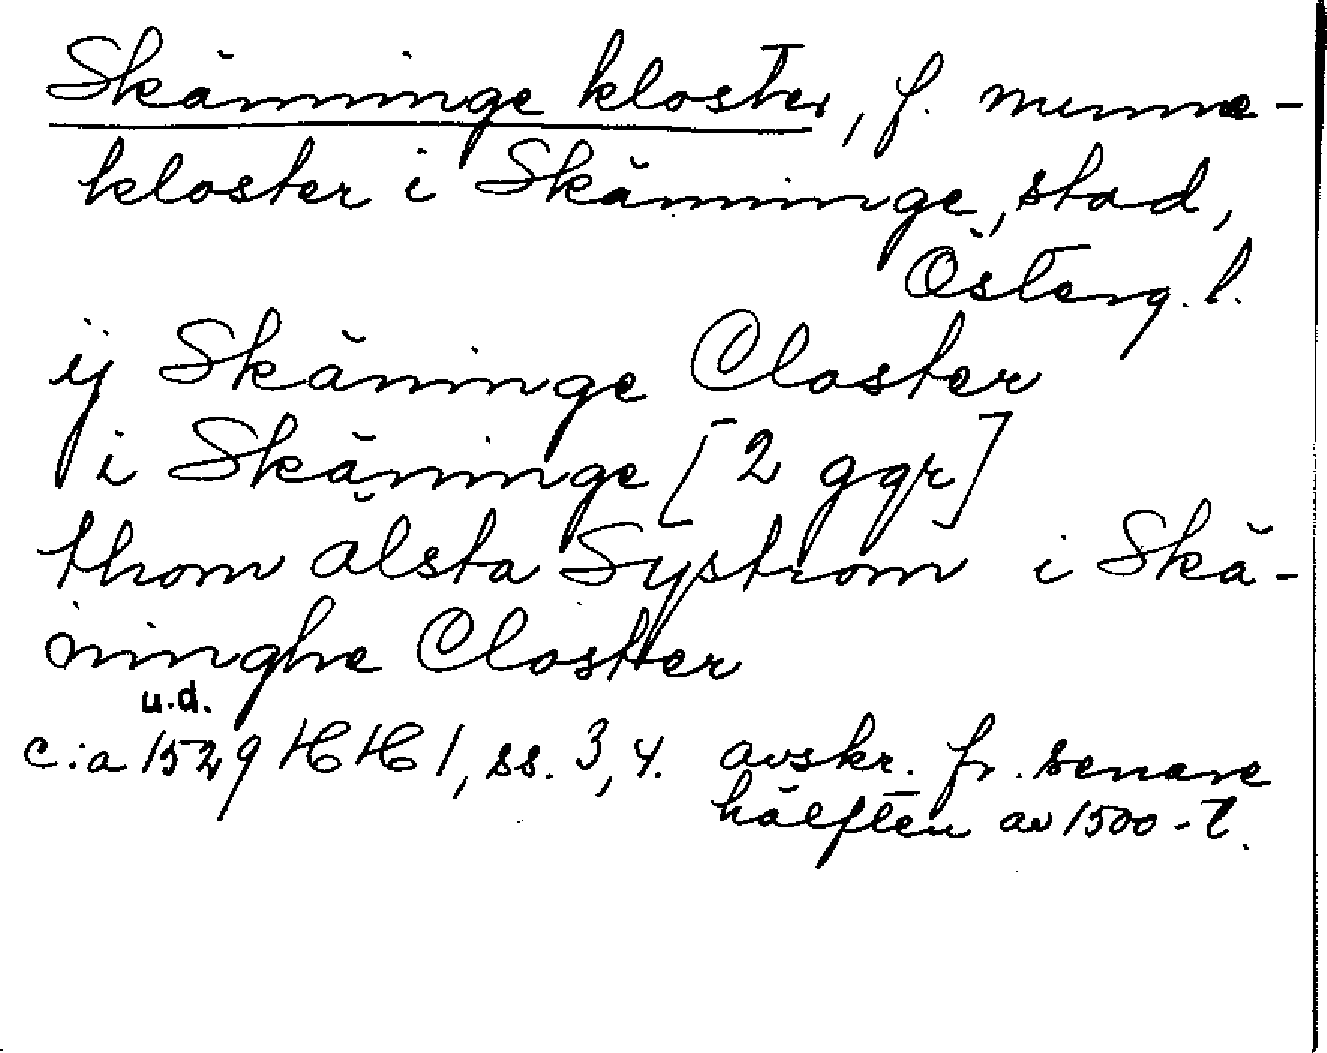 Skänninge kloster, f. nunne-
kloster i Skänninge, stad,
Österg. l.
ij Skäninge Closter
i Skäninge [2 ggr]
thom alsta Systrom i Skä-
ninghe Closter
u.d.
c:a 1529 HH 1, ss. 3, 4. avskr. fr. senare
hälften av 1500-t.